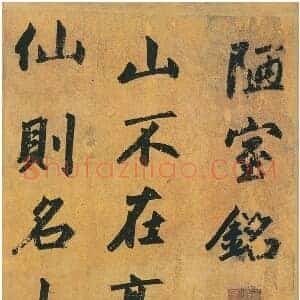 陋室銘
山不在高
仙則名
shufaziliao.com